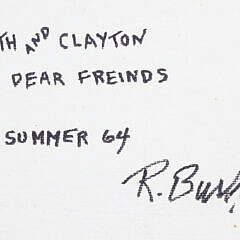 TH AND CLAYTON
DEAR FREINDS
SUMMER 64
R. Bu